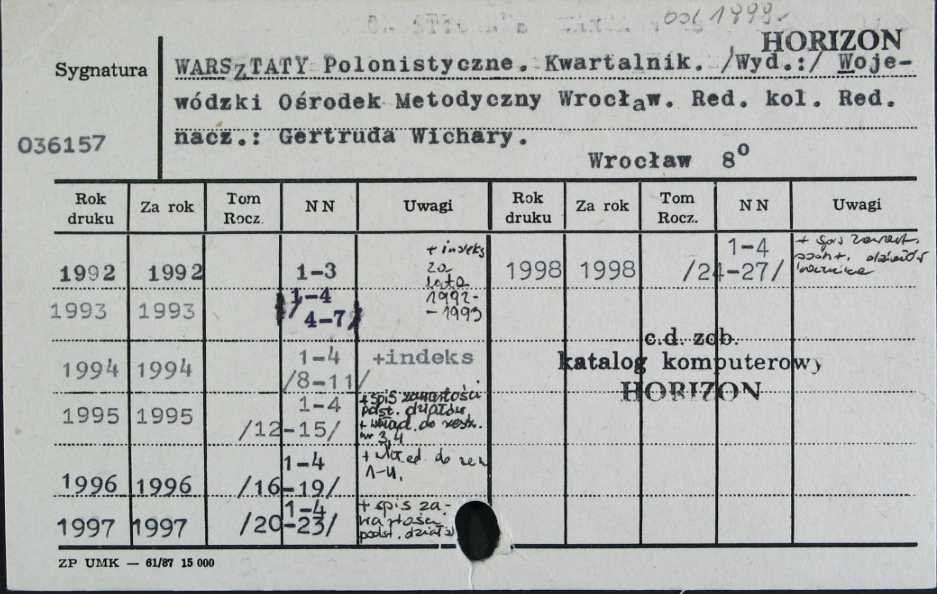 od 1999.
HORIZON
Sygnatura
WARSzTATY Polonistyczne. Kwartalnik. /Wyd.:/ Woje-
wódzki Ośrodek Metodyczny Wrocław. Red. kol. Red.
nacz.: Gertruda Wichary.
036157
Wrocław 8°
Rok druku Za rok Tom Rocz. NN Uwagi Rok druku Za rok Tom Rocz. NN Uwagi
1992 1992 1-3 + indeks za lata 1992-
-1993
1998 1998 1-4 /24-27/ + spis zawart. podst. działów
1993 1993 1-4 /4-7/
1994 1994 1-4 /8-11/ +indeks
1995 1995 1-4 /12-15/ + spis zawartości podst. działów + wkład. do zesz. nr 3,4
1996 1996 1-4 /16-19/ + wkład. do 1-4.
1997 1997 1-4 /20-23/ + spis za-
wartości podst. działów
c.d. zob.
katalog komputerowy
HORIZON
ZP UMK — 61/87 15 000